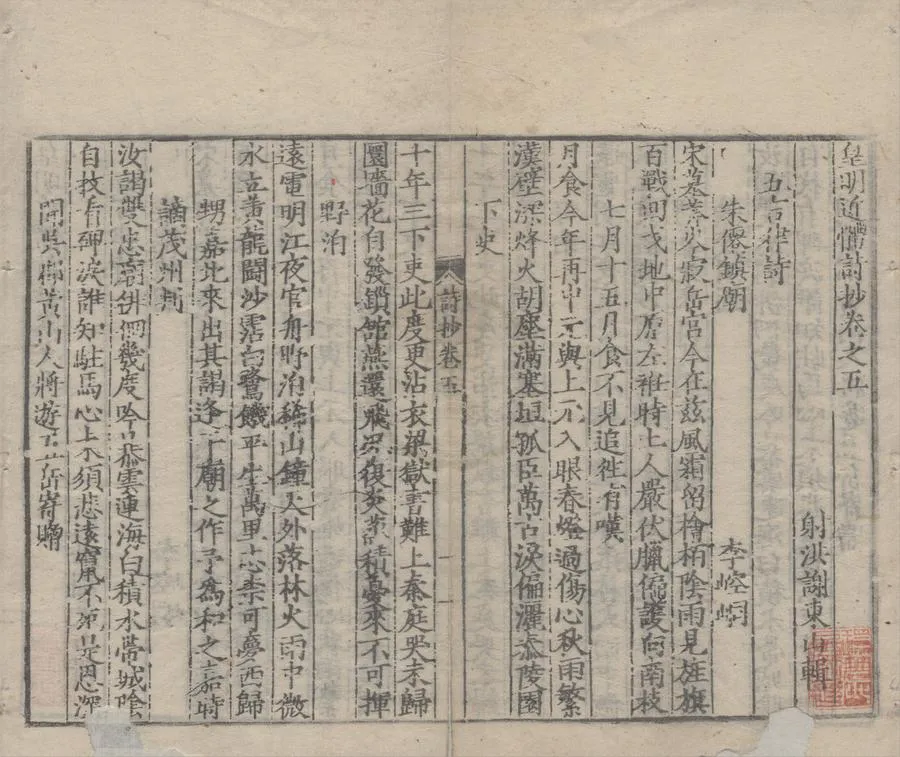 皇明近體詩抄卷之五
射洪謝東山輯
五言律詩
朱僊鎮廟 李崆峒
宋墓莽岑寂岳宮今在兹風霜留檜栢陰雨見旌旗
百戰間戈地中原左袵時土人嚴伏臘偏護向南枝
七月十五月食不見追徃有嘆
月食今年再中元與上元入眼春燈過傷心秋雨繁
漢壁深烽火胡塵滿塞垣孤臣萬古淚偏灑泰陵園
下吏
十年三下吏此度更沾衣梁獄書難上秦庭哭未歸
圜墻花自發鎖舘燕還飛況復炎蒸積憂來不可揮
詩抄卷五
野泊
遠電明江夜官舟野泊稀山鐘天外落林火雨中微
水立黃龍鬬沙霑白鷺饑平生萬里志柰可夢西歸
甥嘉北來出其謁逢干廟之作予為和之嘉時
謫茂州判
汝謁雙忠廟徘徊幾度吟 雲連海白積水帶城陰
自抆看碑淚誰知駐馬心上不須悲遠竄不死是恩深
聞吳 黃山人將遊五岳寄贈